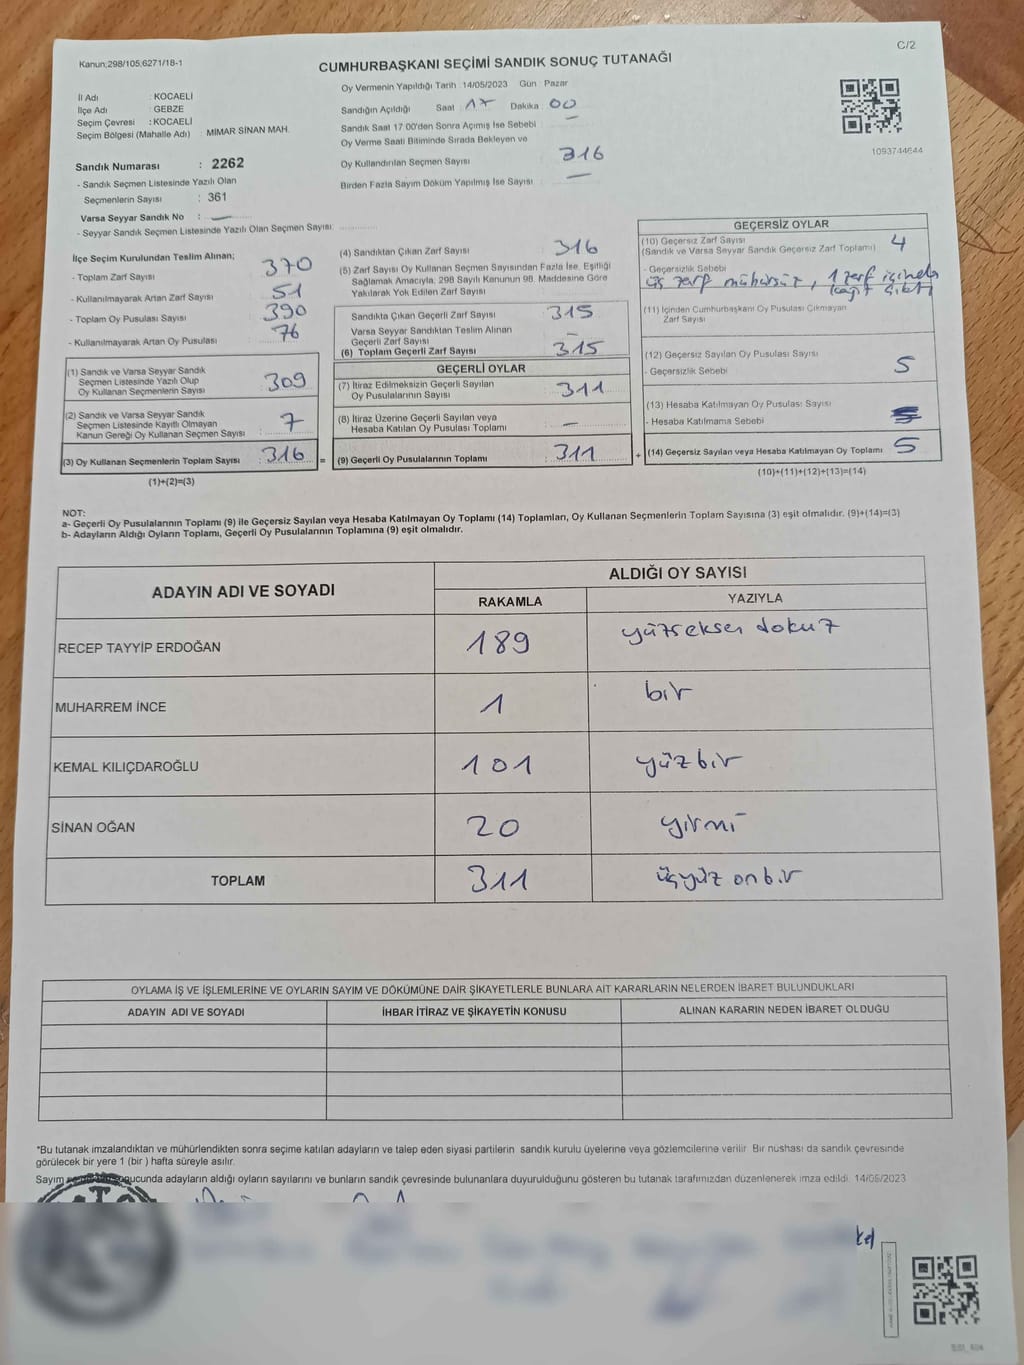 C/2
Kanun;298/105;6271/18-1
CUMHURBAŞKANI SEÇİMİ SANDIK SONUÇ TUTANAĞI
İl Adı : KOCAELİ
İlçe Adı : GEBZE
Seçim Çevresi : KOCAELİ
Seçim Bölgesi (Mahalle Adı) : MİMAR SİNAN MAH.
Sandık Numarası : 2262
- Sandık Seçmen Listesinde Yazılı Olan
Seçmenlerin Sayısı : 361
Varsa Seyyar Sandık No : —
- Seyyar Sandık Seçmen Listesinde Yazılı Olan Seçmen Sayısı:
Oy Vermenin Yapıldığı Tarih :14/05/2023 Gün : Pazar
Sandığın Açıldığı Saat : 17 Dakika : 00
Sandık Saat 17:00'den Sonra Açılmış İse Sebebi : —
Oy Verme Saati Bitiminde Sırada Bekleyen ve
Oy Kullandırılan Seçmen Sayısı : 316
Birden Fazla Sayım Döküm Yapılmış İse Sayısı : —
1093744644
İlçe Seçim Kurulundan Teslim Alınan;
- Toplam Zarf Sayısı : 370
- Kullanılmayarak Artan Zarf Sayısı : 51
- Toplam Oy Pusulası Sayısı : 390
- Kullanılmayarak Artan Oy Pusulası : 76
(1) Sandık ve Varsa Seyyar Sandık
Seçmen Listesinde Yazılı Olup
Oy Kullanan Seçmenlerin Sayısı : 309
(2) Sandık ve Varsa Seyyar Sandık
Seçmen Listesinde Kayıtlı Olmayan
Kanun Gereği Oy Kullanan Seçmen Sayısı : 7
(3) Oy Kullanan Seçmenlerin Toplam Sayısı : 316 =
(1)+(2)=(3)
(4) Sandıktan Çıkan Zarf Sayısı : 316
(5) Zarf Sayısı Oy Kullanan Seçmen Sayısından Fazla İse, Eşitliği
Sağlamak Amacıyla, 298 Sayılı Kanunun 98. Maddesine Göre
Yakılarak Yok Edilen Zarf Sayısı :
Sandıkta Çıkan Geçerli Zarf Sayısı : 315
Varsa Seyyar Sandıktan Teslim Alınan
Geçerli Zarf Sayısı : —
(6) Toplam Geçerli Zarf Sayısı : 315
GEÇERLİ OYLAR
(7) İtiraz Edilmeksizin Geçerli Sayılan
Oy Pusulalarının Sayısı : 311
(8) İtiraz Üzerine Geçerli Sayılan veya
Hesaba Katılan Oy Pusulası Toplamı : —
(9) Geçerli Oy Pusulalarının Toplamı : 311 +
GEÇERSİZ OYLAR
(10) Geçersiz Zarf Sayısı : 4
(Sandık ve Varsa Seyyar Sandık Geçersiz Zarf Toplamı)
- Geçersizlik Sebebi
üç zarf mühürsüz, 1 zarf içinde
kağıt çıktı
(11) İçinden Cumhurbaşkanı Oy Pusulası Çıkmayan
Zarf Sayısı
(12) Geçersiz Sayılan Oy Pusulası Sayısı : 5
- Geçersizlik Sebebi
(13) Hesaba Katılmayan Oy Pusulası Sayısı
- Hesaba Katılmama Sebebi
(14) Geçersiz Sayılan veya Hesaba Katılmayan Oy Toplamı : 5
(10)+(11)+(12)+(13)=(14)
NOT:
a- Geçerli Oy Pusulalarının Toplamı (9) ile Geçersiz Sayılan veya Hesaba Katılmayan Oy Toplamı (14) Toplamları, Oy Kullanan Seçmenlerin Toplam Sayısına (3) eşit olmalıdır. (9)+(14)=(3)
b- Adayların Aldığı Oyların Toplamı, Geçerli Oy Pusulalarının Toplamına (9) eşit olmalıdır.
ADAYIN ADI VE SOYADI
ALDIĞI OY SAYISI
RAKAMLA YAZIYLA
RECEP TAYYİP ERDOĞAN 189 yüzseksen dokuz
MUHARREM İNCE 1 bir
KEMAL KILIÇDAROĞLU 101 yüzbir
SİNAN OĞAN 20 yirmi
TOPLAM 311 üçyüz onbir
OYLAMA İŞ VE İŞLEMLERİNE VE OYLARIN SAYIM VE DÖKÜMÜNE DAİR ŞİKAYETLERLE BUNLARA AİT KARARLARIN NELERDEN İBARET BULUNDUKLARI
ADAYIN ADI VE SOYADI İHBAR İTİRAZ VE ŞİKAYETİN KONUSU ALINAN KARARIN NEDEN İBARET OLDUĞU
*Bu tutanak imzalandıktan ve mühürlendikten sonra seçime katılan adayların ve talep eden siyasi partilerin sandık kurulu üyelerine veya gözlemcilerine verilir. Bir nushası da sandık çevresinde
görülecek bir yere 1 (bir ) hafta süreyle asılır.
Sayım sonucunda adayların aldığı oyların sayılarını ve bunların sandık çevresinde bulunanlara duyurulduğunu gösteren bu tutanak tarafımızdan düzenlenerek imza edildi. 14/05/2023